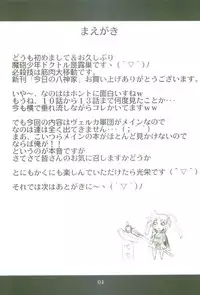 まえがき
どうも初めまして＆お久しぶり
魔砲少年ドクトル昆露巣ですヽ(´▽｀)ﾉ
必殺技は筋肉大移動です。
新刊「今日の八神家」お買い上げありがとうございます。
いや～、なのははホントに面白いすねw
もうね、10話から13話まで何度見たことか…
今も横で垂れ流しながらコレかいてますw
でも今回の内容はヴェルカ軍団がメインなので
なのは達は全く出てきません…(；´ )
まぁ、こいつらメインの本がほとんど見かけないので
ならば俺が！！
というのが本音ですが
さてさて皆さんのお気に召しますかどうか
とにもかくにも楽しんでいただけたら光栄です(´▽｀)ﾉ
それでは次はあとがきに～ヽ(´▽｀)ﾉ
03